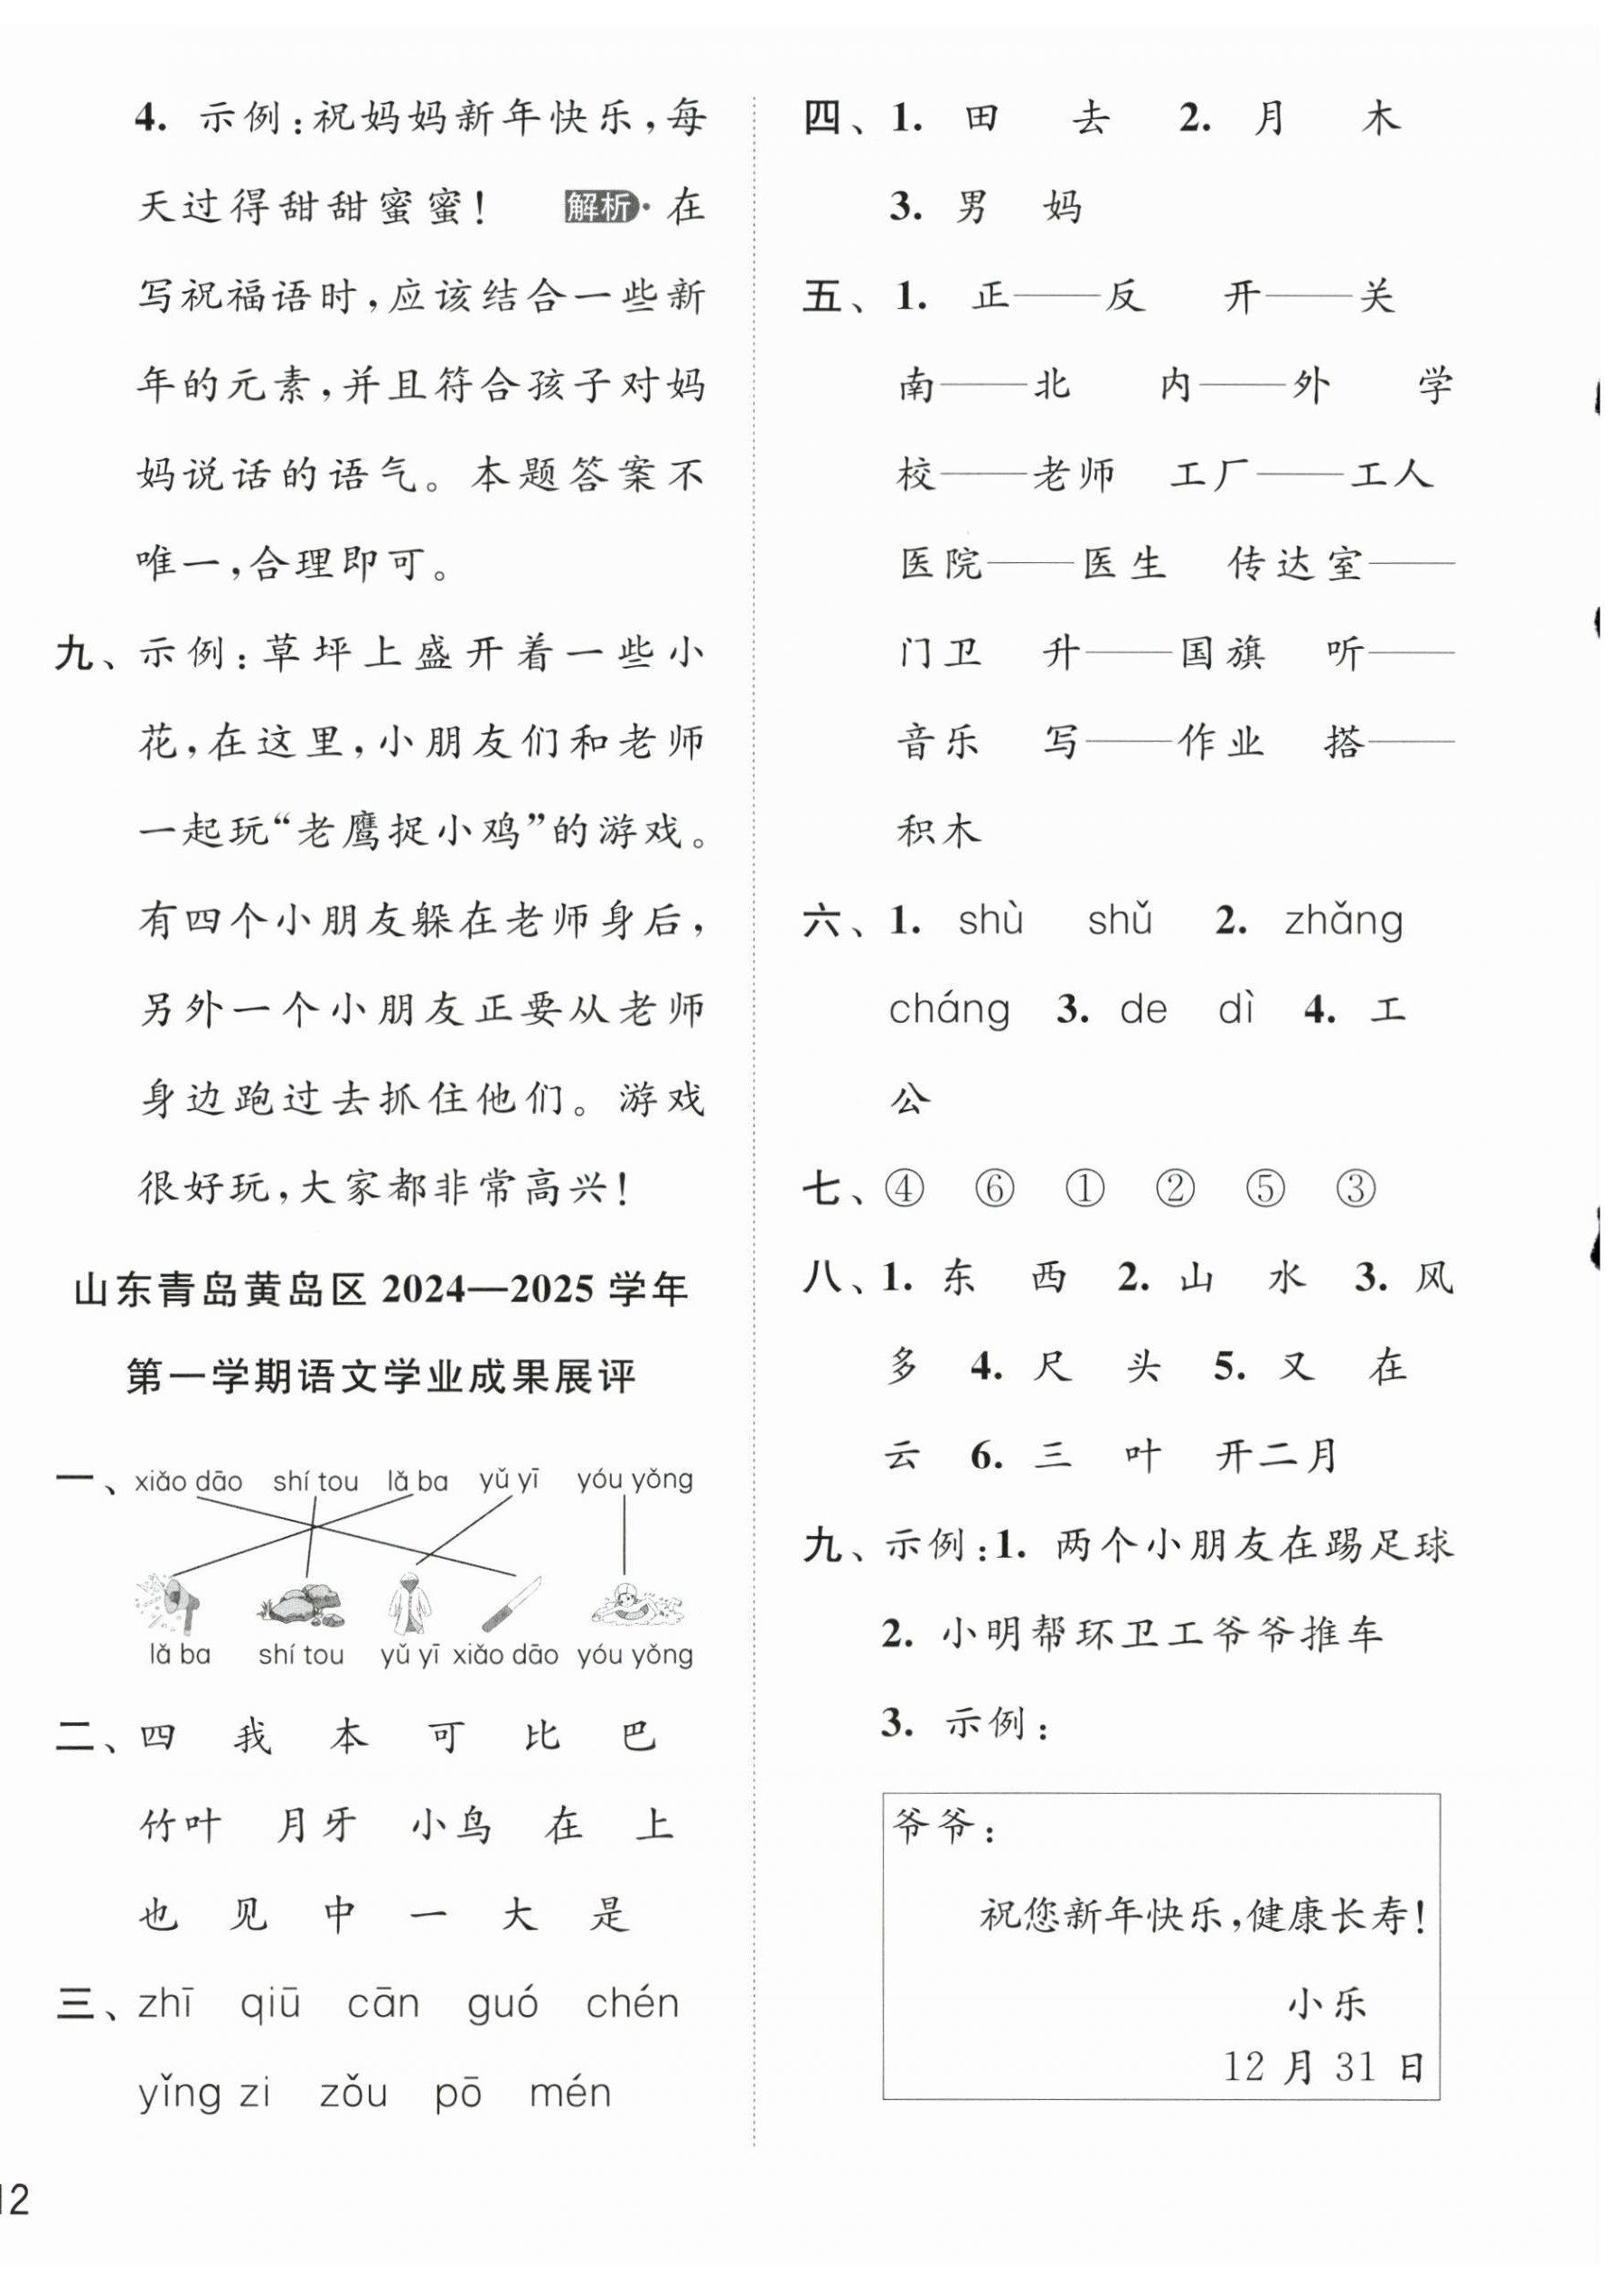 4. 示例:祝妈妈新年快乐,每
天过得甜甜蜜蜜! 解析·在
写祝福语时,应该结合一些新
年的元素,并且符合孩子对妈
妈说话的语气。本题答案不
唯一,合理即可。
九、示例:草坪上盛开着一些小
花,在这里,小朋友们和老师
一起玩“老鹰捉小鸡”的游戏。
有四个小朋友躲在老师身后,
另外一个小朋友正要从老师
身边跑过去抓住他们。游戏
很好玩,大家都非常高兴!
山东青岛黄岛区 2024—2025 学年
第一学期语文学业成果展评
一、xiǎo dāo shí tou lǎ ba yǔ yī yóu yǒng
lǎ ba shí tou yǔ yī xiǎo dāo yóu yǒng
二、四 我 本 可 比 巴
竹叶 月牙 小鸟 在 上
也 见 中 一 大 是
三、zhī qiū cān guó chén
yǐng zi zǒu pō mén
12
四、1. 田 去 2. 月 木
3. 男 妈
五、1. 正——反 开——关
南——北 内——外 学
校——老师 工厂——工人
医院——医生 传达室——
门卫 升——国旗 听——
音乐 写——作业 搭——
积木
六、1. shù shǔ 2. zhǎng
cháng 3. de dì 4. 工
公
七、④ ⑥ ① ② ⑤ ③
八、1. 东 西 2. 山 水 3. 风
多 4. 尺 头 5. 又 在
云 6. 三 叶 开二月
九、示例:1. 两个小朋友在踢足球
2. 小明帮环卫工爷爷推车
3. 示例:
爷爷:
祝您新年快乐,健康长寿!
小乐
12 月 31 日